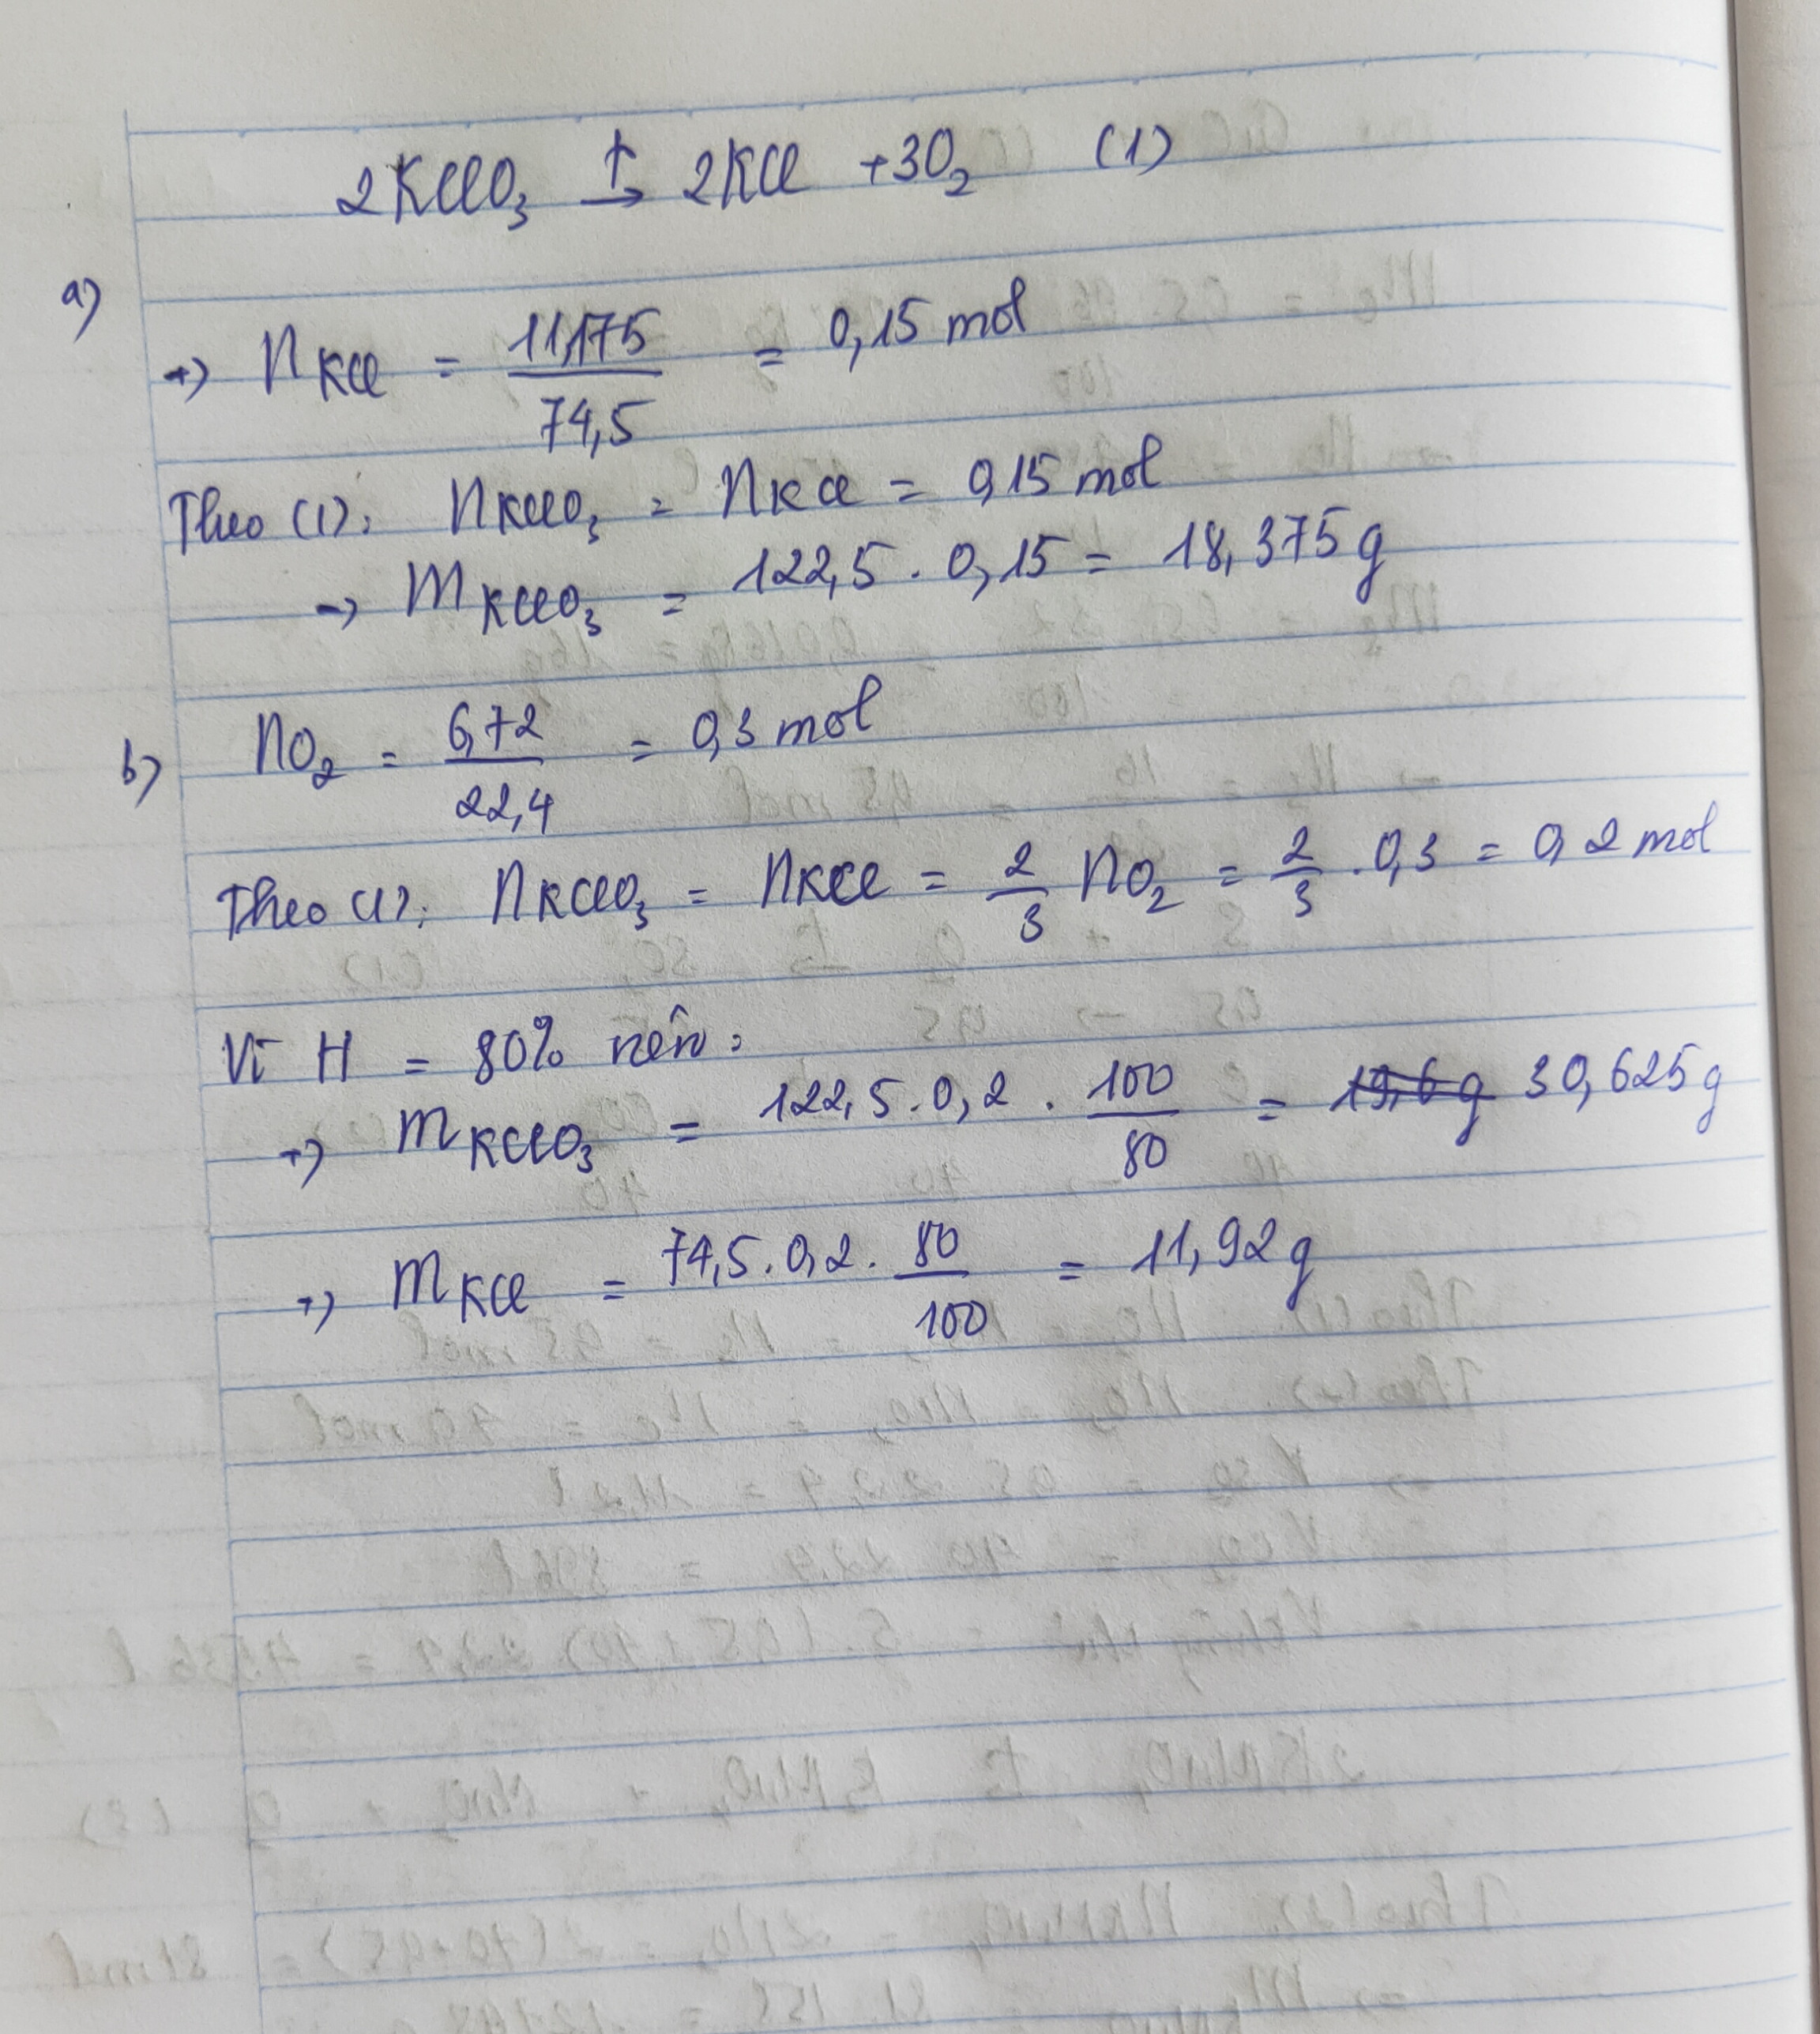 2KClO₃ →↑ 2KCl + 3O₂ (1)
a)
→ nKCl = 11,175/74,5 = 0,15 mol
Theo (1): nKClO₃ = nKCl = 0,15 mol
→ mKClO₃ = 122,5 . 0,15 = 18,375 g
b) nO₂ = 6,72/22,4 = 0,3 mol
Theo (1): nKClO₃ = nKCl = 2/3 nO₂ = 2/3 . 0,3 = 0,2 mol
Vì H = 80% nên:
→ mKClO₃ = 122,5 . 0,2 . 100/80 = 19,6 g 30,625 g
→ mKCl = 74,5 . 0,2 . 80/100 = 11,92 g